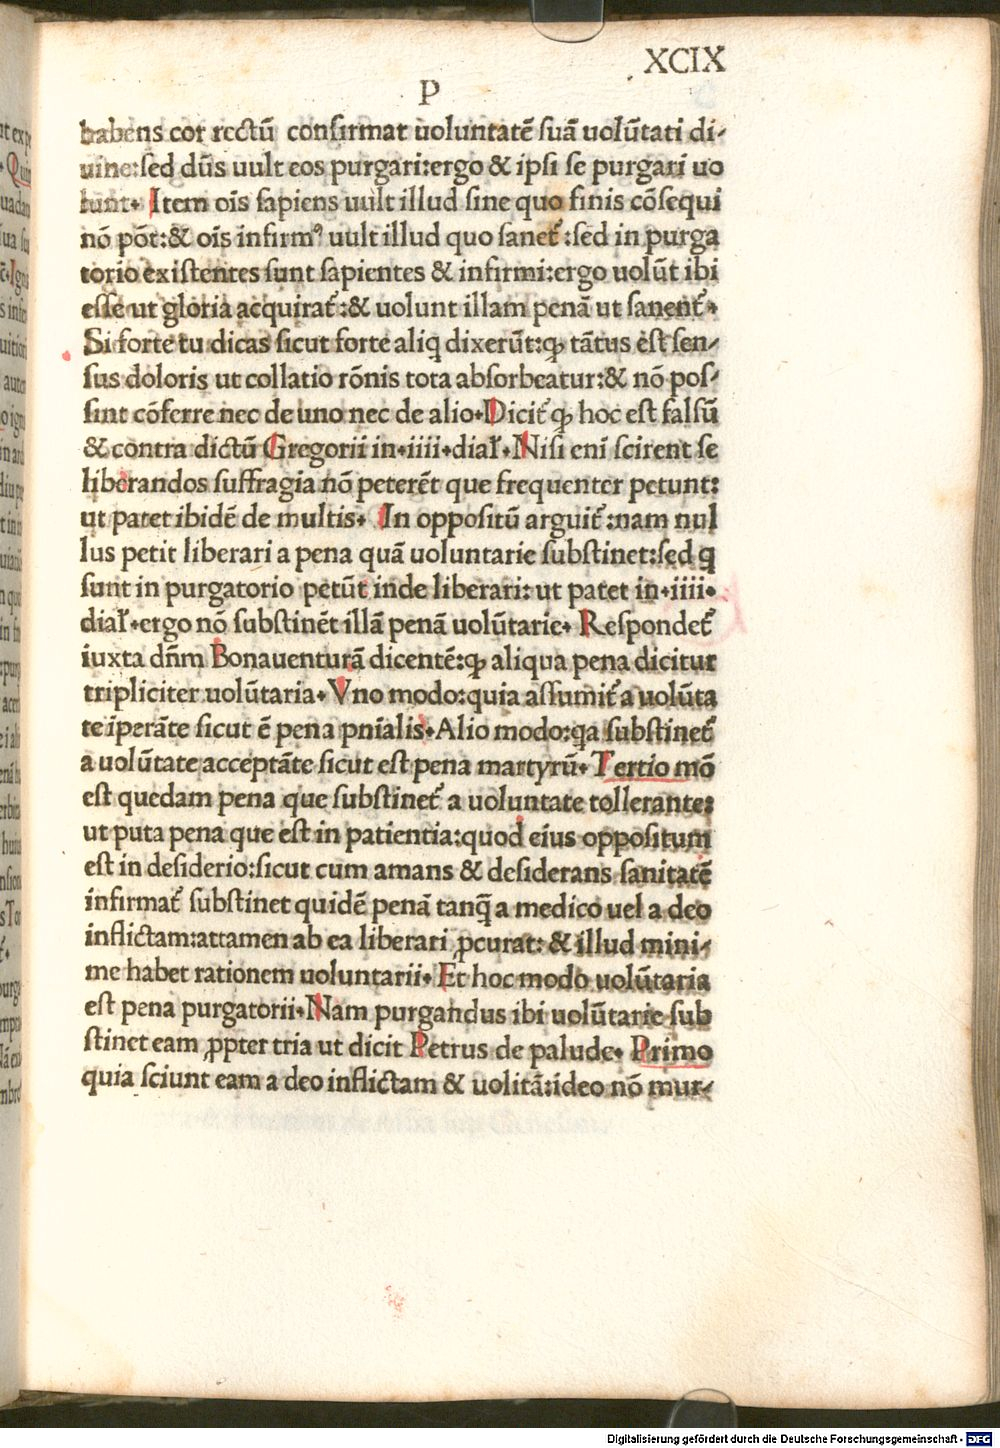 XCIX
P
habens cor rectū confirmat uoluntatē ſuā uolūtati di-
uine:ſed dūs uult eos purgari:ergo & ipſi ſe purgari uo
lunt. Item oīs ſapiens uult illud ſine quo finis cōſequi
nō pōt:& oīs infirmꝰ uult illud quo ſanet̃:ſed in purga
torio exiſtentes ſunt ſapientes & infirmi:ergo uolūt ibi
eſſe ut gloria acquirat̃:& uolunt illam penā ut ſanent̃.
Si forte tu dicas ſicut forte aliq dixerūt:ꝙ tātus eſt ſen-
ſus doloris ut collatio rōnis tota abſorbeatur:& nō poſ-
ſint cōferre nec de uno nec de alio.Dicit̃ ꝙ hoc eſt falſū
& contra dictū Gregorii in.iiii.dial̃.Niſi enī ſcirent ſe
liberandos ſuffragia nō peterēt que frequenter petunt:
ut patet ibidē de multis. In oppoſitū arguit̃:nam nul
lus petit liberari a pena quā uoluntarie ſubſtinet:ſed q̄
ſunt in purgatorio petūt inde liberari: ut patet in.iiii.
dial̃.ergo nō ſubſtinēt illā penā uolūtarie. Reſpondet̃
iuxta dn̄m Bonauenturā dicentē:ꝙ aliqua pena dicitur
tripliciter uolūtaria.Vno modo:quia aſſumit̃ a uolūta
te īperāte ſicut ē pena pnīalis.Alio modo:qa ſubſtinet̃
a uolūtate acceptāte ſicut eſt pena martyrū.Tertio mō
eſt quedam pena que ſubſtinet̃ a uoluntate tollerante:
ut puta pena que eſt in patientia:quod eius oppoſitum
eſt in deſiderio:ſicut cum amans & deſiderans ſanitatē
infirmat̃ ſubſtinet quidē penā tanq̄ a medico uel a deo
inflictam:attamen ab ea liberari ꝓcurat: & illud mini-
me habet rationem uoluntarii. Et hoc modo uolūtaria
eſt pena purgatorii.Nam purgandus ibi uolūtarie ſub
ſtinet eam ꝓpter tria ut dicit Petrus de palude. Primo
quia ſciunt eam a deo inflictam & uolitā:ideo nō mur-
Digitalisierung gefördert durch die Deutsche Forschungsgemeinschaft - DFG